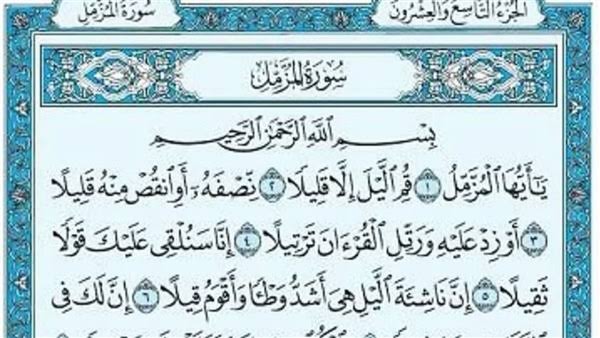 الجزء التاسع والعشرون
سورة المزمل
سُورَةُ المُزَّمِّل
بِسْمِ اللَّهِ الرَّحْمَٰنِ الرَّحِيمِ
يَٰٓأَيُّهَا ٱلْمُزَّمِّلُ ١ قُمِ ٱلَّيْلَ إِلَّا قَلِيلًا ٢ نِّصْفَهُۥٓ أَوِ ٱنقُصْ مِنْهُ قَلِيلًا
٣ أَوْ زِدْ عَلَيْهِ وَرَتِّلِ ٱلْقُرْءَانَ تَرْتِيلًا ٤ إِنَّا سَنُلْقِى عَلَيْكَ قَوْلًا
ثَقِيلًا ٥ إِنَّ نَاشِئَةَ ٱلَّيْلِ هِىَ أَشَدُّ وَطْـًٔا وَأَقْوَمُ قِيلًا ٦ إِنَّ لَكَ فِى